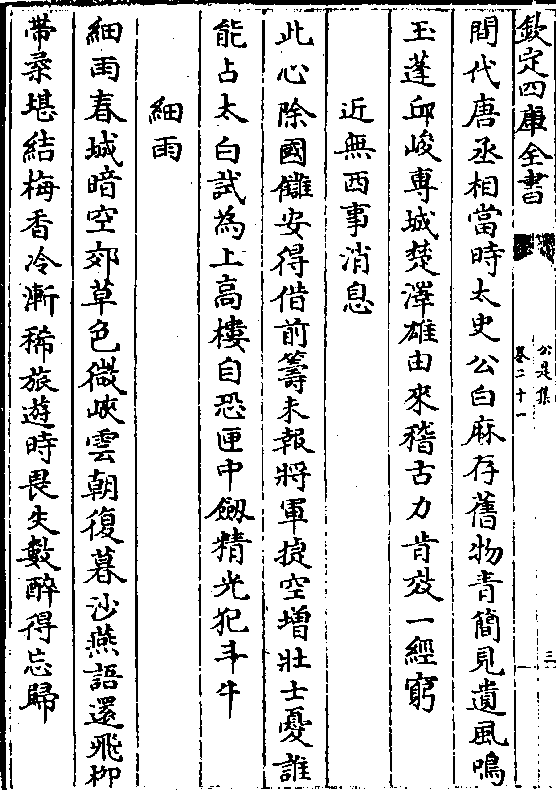 欽定四庫全書
公是集
卷二十一
三
間代唐丞相當時太史公白麻存舊物青簡見遺風鳴
玉蓬邱峻專城楚澤雄由來稽古力肯效一經窮
近無西事消息
此心除國讎安得借前籌未報將軍捷空增壯士憂誰
能占太白試為上高樓自恐匣中劔精光犯斗牛
細雨
細雨春城暗空郊草色微峽雲朝復暮沙燕語還飛柳
帶桑堪結梅香冷漸稀旅遊時畏失數醉得忘歸